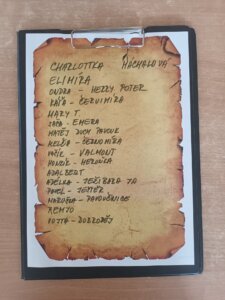 CHARLOTTKA - MACHALOVÁ
ELIMÍRA
ONDRA - HERRY POTER
KÁŤA - ČERVIMÍRA
MARY T
SÁŇA - EMERA
MATĚJ DUCH PAVOUK
KELIŠA - ČERNOMÍRA
- VALMONT
HONZÍK - HERONKA
ADALBERT
ADÉLKA - JEŽIBABA
PAVEL - JESTER
MARUŠKA - PAVOUČNICE
REMJO
VOJTA - DOBRODĚJ